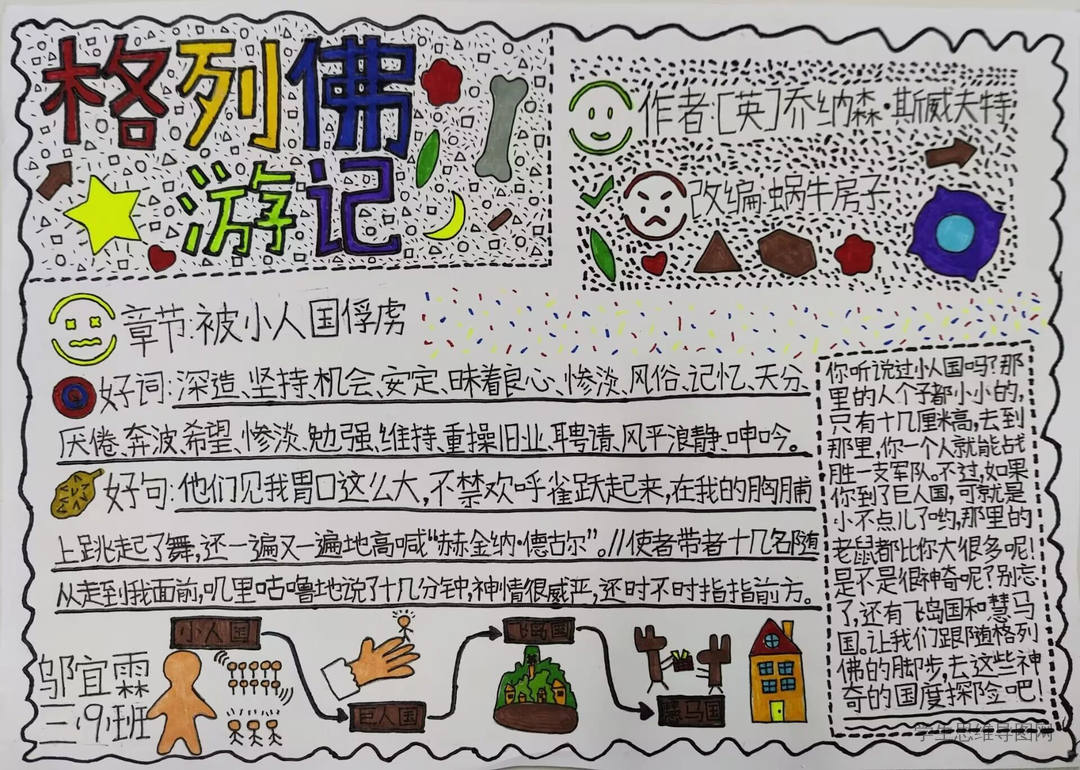 格列佛
游记
作者:[英]乔纳森·斯威夫特
改编:蜗牛房子
章节:被小人国俘虏
好词:深造、坚持、机会、安定、昧着良心、惨淡、风俗、记忆、天分、
厌倦、奔波、希望、惨淡、勉强、维持、重操旧业、聘请、风平浪静、呻吟。
好句:他们见我胃口这么大,不禁欢呼雀跃起来,在我的胸脯
上跳起了舞,还一遍又一遍地高喊“赫金纳·德古尔”。//使者带者十几名随
从走到我面前,叽里咕噜地说了十几分钟,神情很威严,还时不时指指前方。
你听说过小人国吗?那
里的人个子都小小的,
只有十几厘米高,去到
那里,你一个人就能战
胜一支军队。不过,如果
你到了巨人国,可就是
小不点儿了哟,那里的
老鼠都比你大很多呢!
是不是很神奇呢?别忘
了,还有飞岛国和慧马
国。让我们跟随格列
佛的脚步,去这些神
奇的国度探险吧!
小人国
巨人国
飞岛国
慧马国
邬宜霖
三(9)班
学生思维导图网